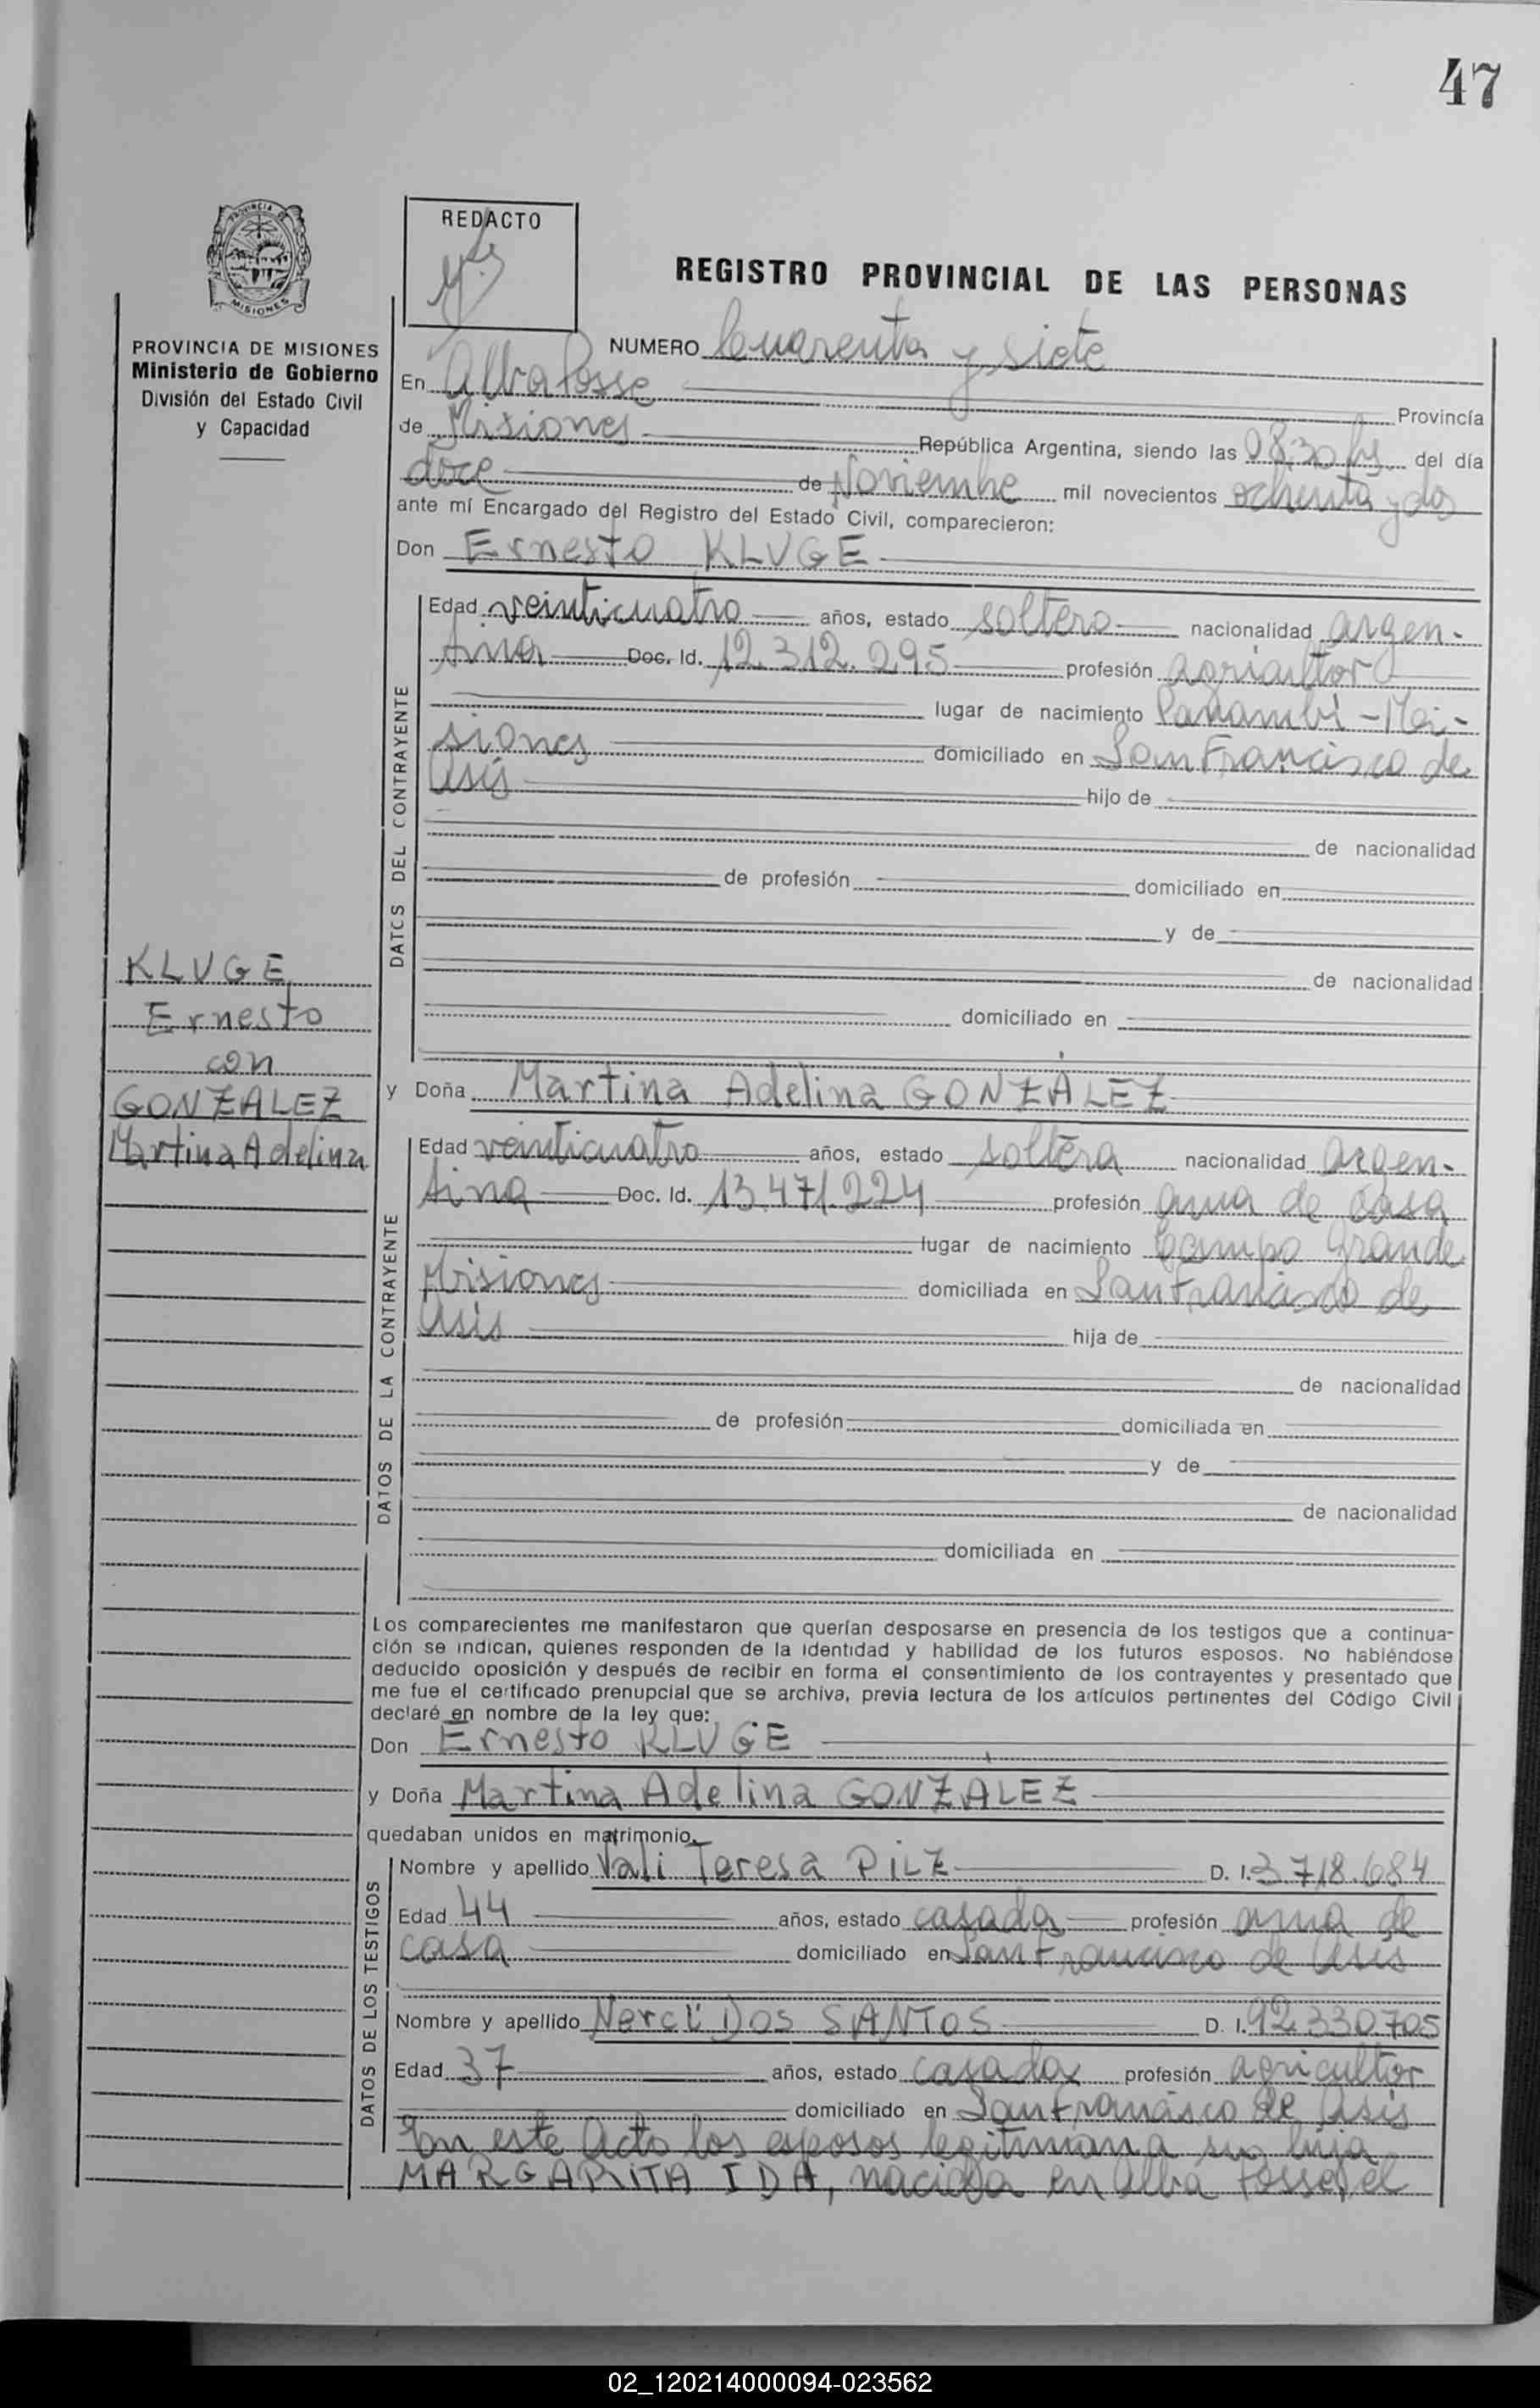 47
PROVINCIA DE
MISIONES
PROVINCIA DE MISIONES
Ministerio de Gobierno
División del Estado Civil
y Capacidad
REDACTO
REGISTRO PROVINCIAL DE LAS PERSONAS
NUMERO Cuarenta y siete
En Alba Posse Provincia
de Misiones República Argentina, siendo las 08,30 hs del día
doce de Noviembre mil novecientos ochenta y dos
ante mí Encargado del Registro del Estado Civil, comparecieron:
Don Ernesto KLUGE
DATOS DEL CONTRAYENTE
Edad veinticuatro años, estado soltero nacionalidad argen-
tina Doc. Id. 12.312.295 profesión agricultor
lugar de nacimiento Panambí - Mi-
siones domiciliado en San Francisco de
Asís hijo de
de nacionalidad
de profesión domiciliado en
y de
de nacionalidad
domiciliado en
KLUGE
Ernesto
con
GONZALEZ
Martina Adelina
y Doña Martina Adelina GONZÁLEZ
DATOS DE LA CONTRAYENTE
Edad veinticuatro años, estado soltera nacionalidad argen-
tina Doc. Id. 13.471.224 profesión ama de casa
lugar de nacimiento Campo Grande
Misiones domiciliada en San Francisco de
Asis hija de
de nacionalidad
de profesión domiciliada en
y de
de nacionalidad
domiciliada en
Los comparecientes me manifestaron que querían desposarse en presencia de los testigos que a continua-
ción se indican, quienes responden de la identidad y habilidad de los futuros esposos. No habiéndose
deducido oposición y después de recibir en forma el consentimiento de los contrayentes y presentado que
me fue el certificado prenupcial que se archiva, previa lectura de los artículos pertinentes del Código Civil
declaré en nombre de la ley que:
Don Ernesto KLUGE
y Doña Martina Adelina GONZALEZ
quedaban unidos en matrimonio.
DATOS DE LOS TESTIGOS
Nombre y apellido Vali Teresa PILZ D. I. 3.718.684
Edad 44 años, estado casada profesión ama de
casa domiciliado en San Francisco de Asis
Nombre y apellido Nercí DOS SANTOS D. I. 92.330.705
Edad 37 años, estado casada profesión agricultor
domiciliado en San Francisco de Asis
En este Acto los esposos legitiman a su hija
MARGARITA IDA, nacida en Alba Posse, el
02_120214000094-023562